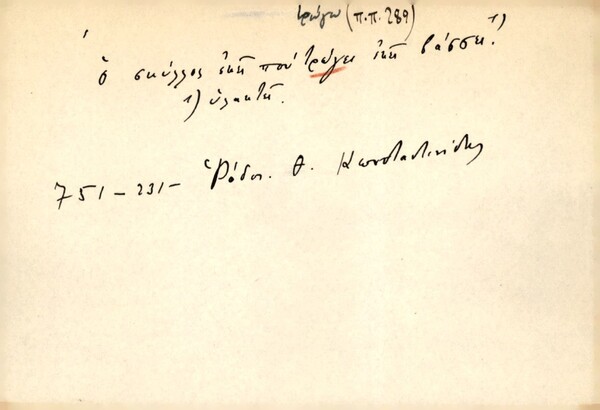 τρώγω (π.π. 289)
ὁ σκύλλος ἐκεῖ πού τρώγει ἐκεῖ βάσσει.¹⁾
1) ὑλακτεῖ.
751-231- Ῥόδος. Θ. Κωνσταντινίδης